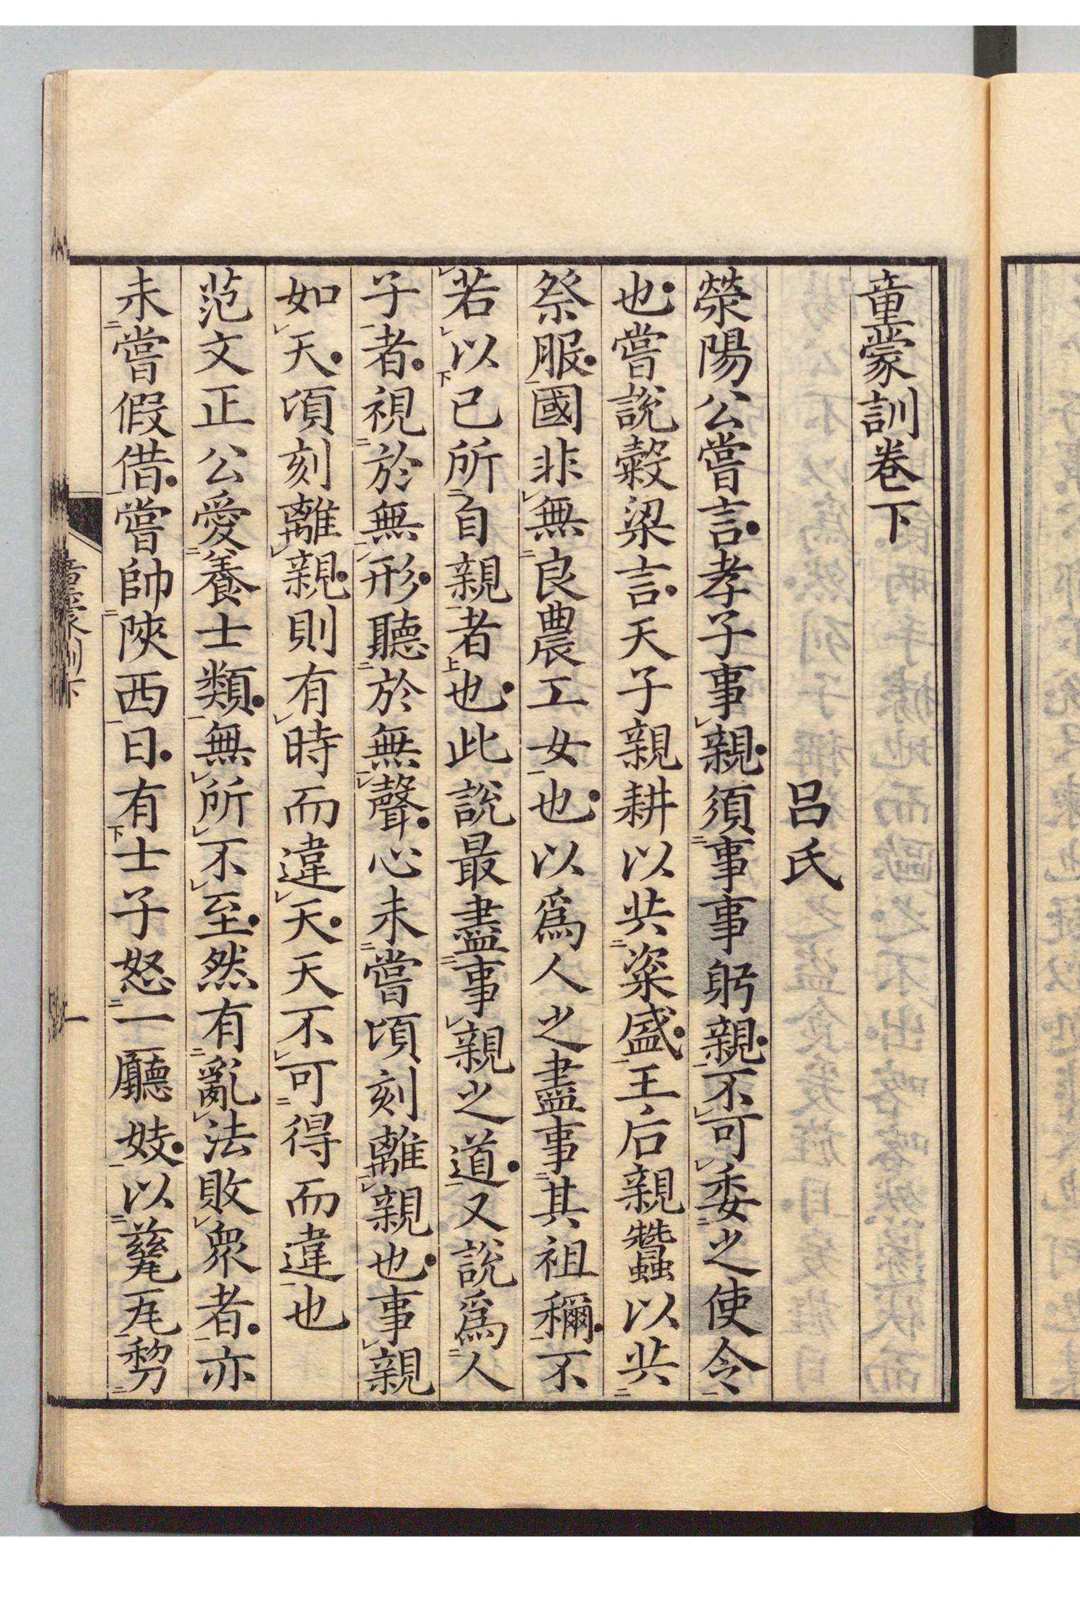 童蒙訓卷下
吕氏
滎陽公嘗言孝子事親須事事躬親不可委之使令
也嘗說穀梁言天子親耕以共粢盛王后親蠶以共
祭服國非無良農工女也以爲人之盡事其祖禰不
若以己所自親者也此說最盡事親之道又說爲人
子者視於無形聽於無聲心未嘗頃刻離親也事親
如天頃刻離親則有時而違天天不可得而違也
范文正公愛養士類無所不至然有亂法敗衆者亦
未嘗假借嘗帥陝西日有士子怒一廳妓以甆瓦剺
童蒙訓下
一